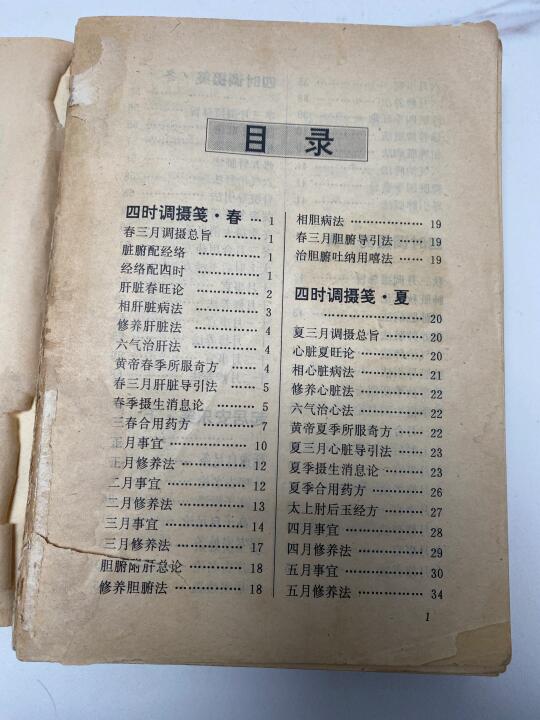 目录
四时调摄笺·春 … 1
春三月调摄总旨 ……… 1
脏腑配经络 ………… 1
经络配四时 ………… 1
肝脏春旺论 ………… 2
相肝脏病法 ………… 3
修养肝脏法 ………… 4
六气治肝法 ………… 4
黄帝春季所服奇方 …… 4
春三月肝脏导引法 …… 5
春季摄生消息论 ……… 5
三春合用药方 ………… 7
正月事宜 …………… 10
正月修养法 ………… 12
二月事宜 …………… 12
二月修养法 ………… 13
三月事宜 …………… 14
三月修养法 ………… 17
胆腑附肝总论 ……… 18
修养胆腑法 ………… 18
相胆病法 …………… 19
春三月胆腑导引法 …… 19
治胆腑吐纳用嘻法 …… 19
四时调摄笺·夏
……………………… 20
夏三月调摄总旨 ……… 20
心脏夏旺论 ………… 20
相心脏病法 ………… 21
修养心脏法 ………… 22
六气治心法 ………… 22
黄帝夏季所服奇方 …… 22
夏三月心脏导引法 …… 23
夏季摄生消息论 ……… 23
夏季合用药方 ……… 26
太上肘后玉经方 ……… 27
四月事宜 …………… 28
四月修养法 ………… 29
五月事宜 …………… 30
五月修养法 ………… 34
1